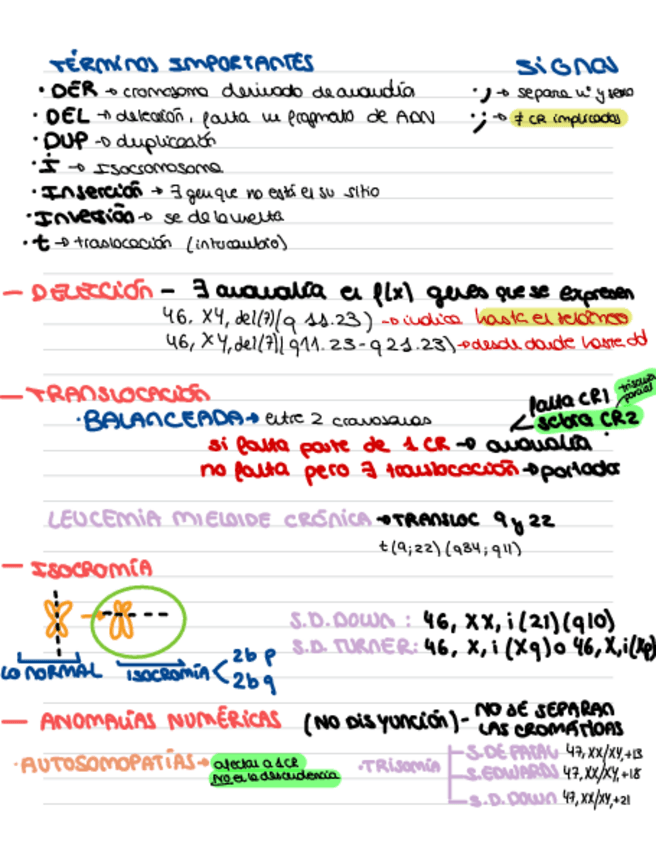 TÉRMINOS IMPORTANTES
SIGNOS
· DER → cromosoma derivado de anomalía
· , → separa nº y sexo
· DEL → delección, falta un fragmento de ADN
· ; → ≠ CR implicados
· DUP → duplicación
· i → Isocromosoma
· Inserción → ∃ gen que no está en su sitio
· Inversión → se da la vuelta
· t → traslocación (intercambio)
— DELECCIÓN - ∃ anomalía en f(x) genes que se expresen
46, XY, del(7)(q 11.23) → indica hasta el telómero
46, XY, del(7)(q11.23-q21.23) → desde donde hasta dd
— TRANSLOCACIÓN
· BALANCEADA → entre 2 cromosomas
falta CR1
sobra CR2
trisomía parcial
si falta parte de 1 CR → anomalía
no falta pero ∃ translocación → portador
LEUCEMIA MIELOIDE CRÓNICA → TRANSLOC 9 y 22
t(9;22)(q34;q11)
— ISOCROMÍA
S.D. DOWN : 46, XX, i(21)(q10)
S.D. TURNER: 46, X, i(Xq) o 46, X, i(Xp)
LO NORMAL
ISOCROMÍA < 2b p
2b q
— ANOMALÍAS NUMÉRICAS (NO DISYUNCIÓN) - NO SE SEPARAN
LAS CROMÁTIDAS
· AUTOSOMOPATÍAS → afectan a 1 CR
NO en la descendencia
· TRISOMÍA
S. DE PATAU 47, XX/XY, +13
S. EDWARDS 47, XX/XY, +18
S.D. DOWN 47, XX/XY, +21